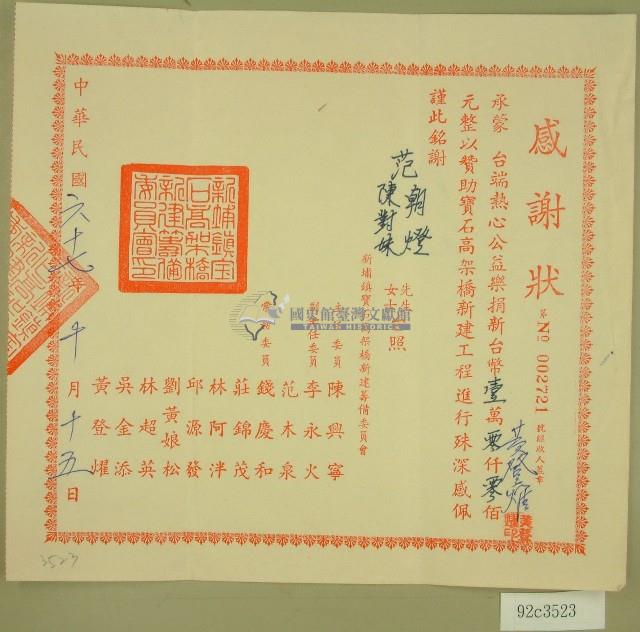 感謝狀
第 № 002721 號經收人蓋章
黃登燿
承蒙 台端熱心公益樂捐新台幣壹萬零仟零佰
元整以贊助寶石高架橋新建工程進行殊深感佩
謹此銘謝
范朝燈
陳對妹
先生
女士 台照
新埔鎮寶石高架橋新建籌備委員會
主任委員 陳興寧
副主任委員 李永火
范木泉
常務委員 錢慶和
莊錦茂
林阿泮
邱源發
劉黃娘松
林超英
吳金添
黃登燿
新埔鎮宝
石高架橋
新建籌備
委員會印
中華民國六十七年十月十五日
國史館臺灣文獻館
TAIWAN HISTORICA
3523
92c3523